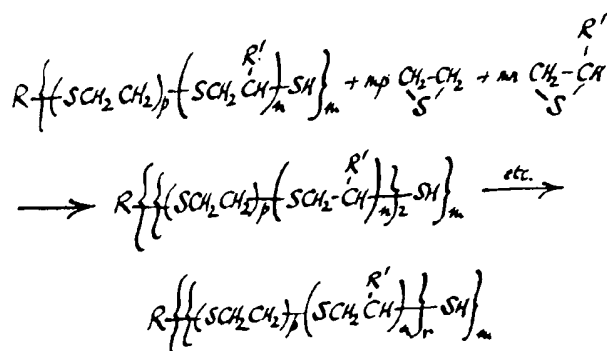 R'
R{(SCH2CH2)p(SCH2CH)n SH}m + mp CH2-CH2 + mn CH2-CH
R'
S
S
R'
⟶ R{{(SCH2CH2)p(SCH2-CH)n}2 SH}m etc. ⟶
R'
R{{(SCH2CH2)p(SCH2CH)n}r SH}m